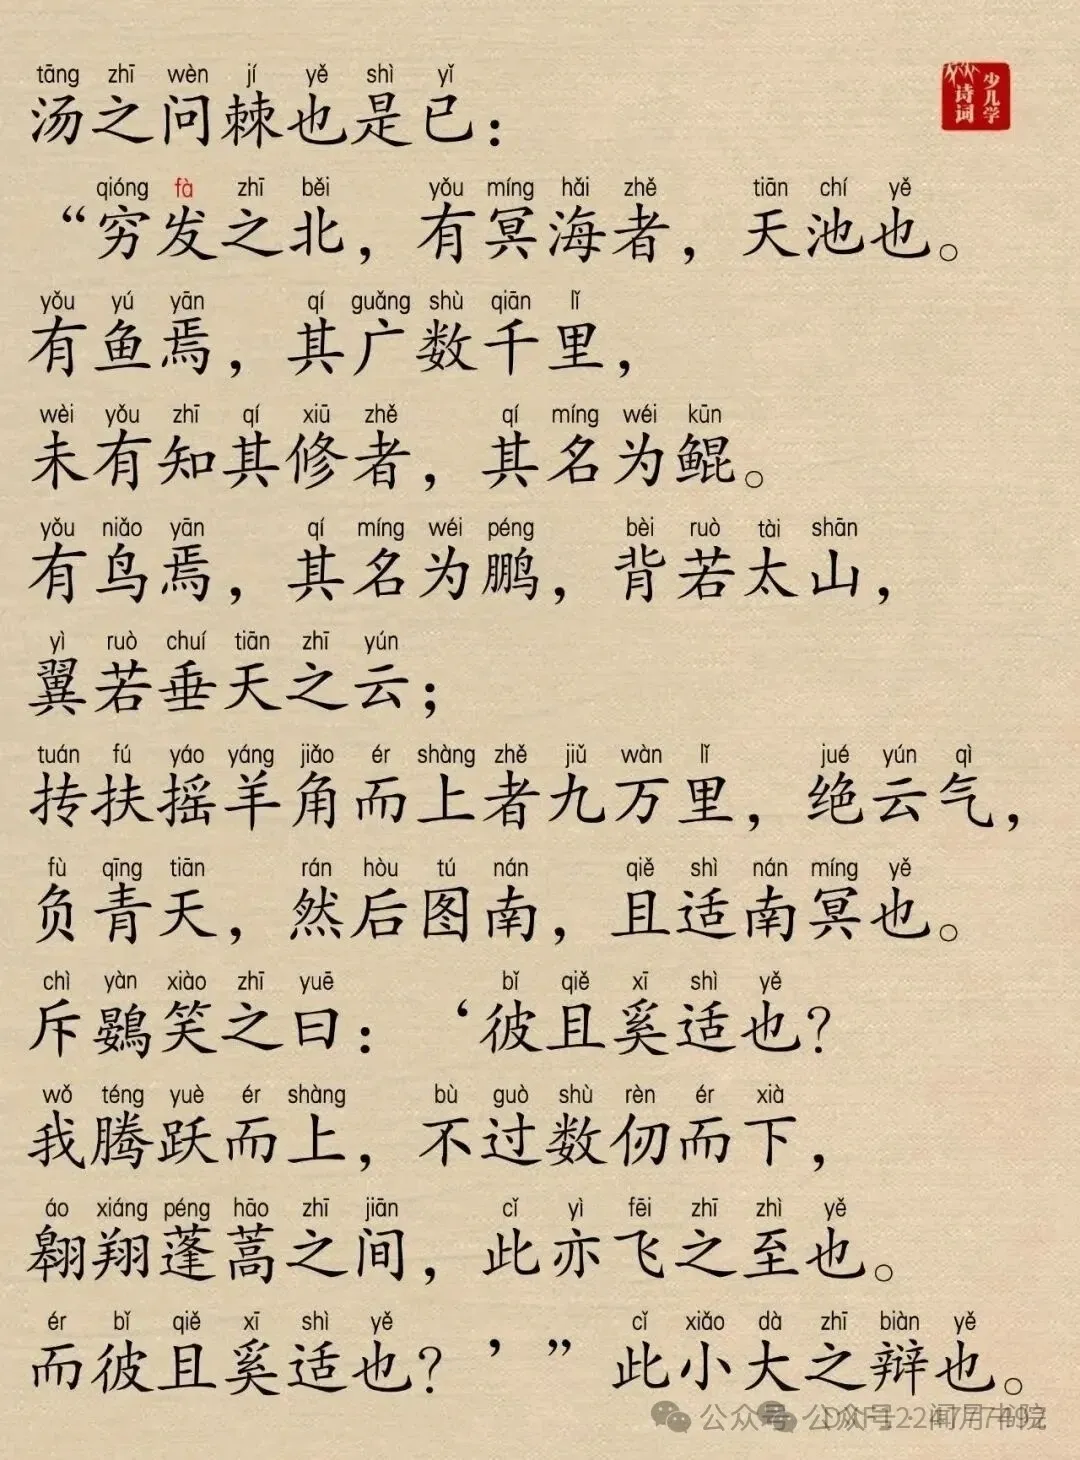 tāng zhī wèn jí yě shì yǐ
汤之问棘也是已：
少儿学
诗词
qióng fà zhī běi yǒu míng hǎi zhě tiān chí yě
“穷发之北，有冥海者，天池也。
yǒu yú yān qí guǎng shù qiān lǐ
有鱼焉，其广数千里，
wèi yǒu zhī qí xiū zhě qí míng wéi kūn
未有知其修者，其名为鲲。
yǒu niǎo yān qí míng wéi péng bèi ruò tài shān
有鸟焉，其名为鹏，背若太山，
yì ruò chuí tiān zhī yún
翼若垂天之云；
tuán fú yáo yáng jiǎo ér shàng zhě jiǔ wàn lǐ jué yún qì
抟扶摇羊角而上者九万里，绝云气，
fù qīng tiān rán hòu tú nán qiě shì nán míng yě
负青天，然后图南，且适南冥也。
chì yàn xiào zhī yuē bǐ qiě xī shì yě
斥鷃笑之曰：‘彼且奚适也？
wǒ téng yuè ér shàng bù guò shù rèn ér xià
我腾跃而上，不过数仞而下，
áo xiáng péng hāo zhī jiān cǐ yì fēi zhī zhì yě
翱翔蓬蒿之间，此亦飞之至也。
ér bǐ qiě xī shì yě cǐ xiǎo dà zhī biàn yě
而彼且奚适也？’”此小大之辩也。
公众号 公众号·闻月书院